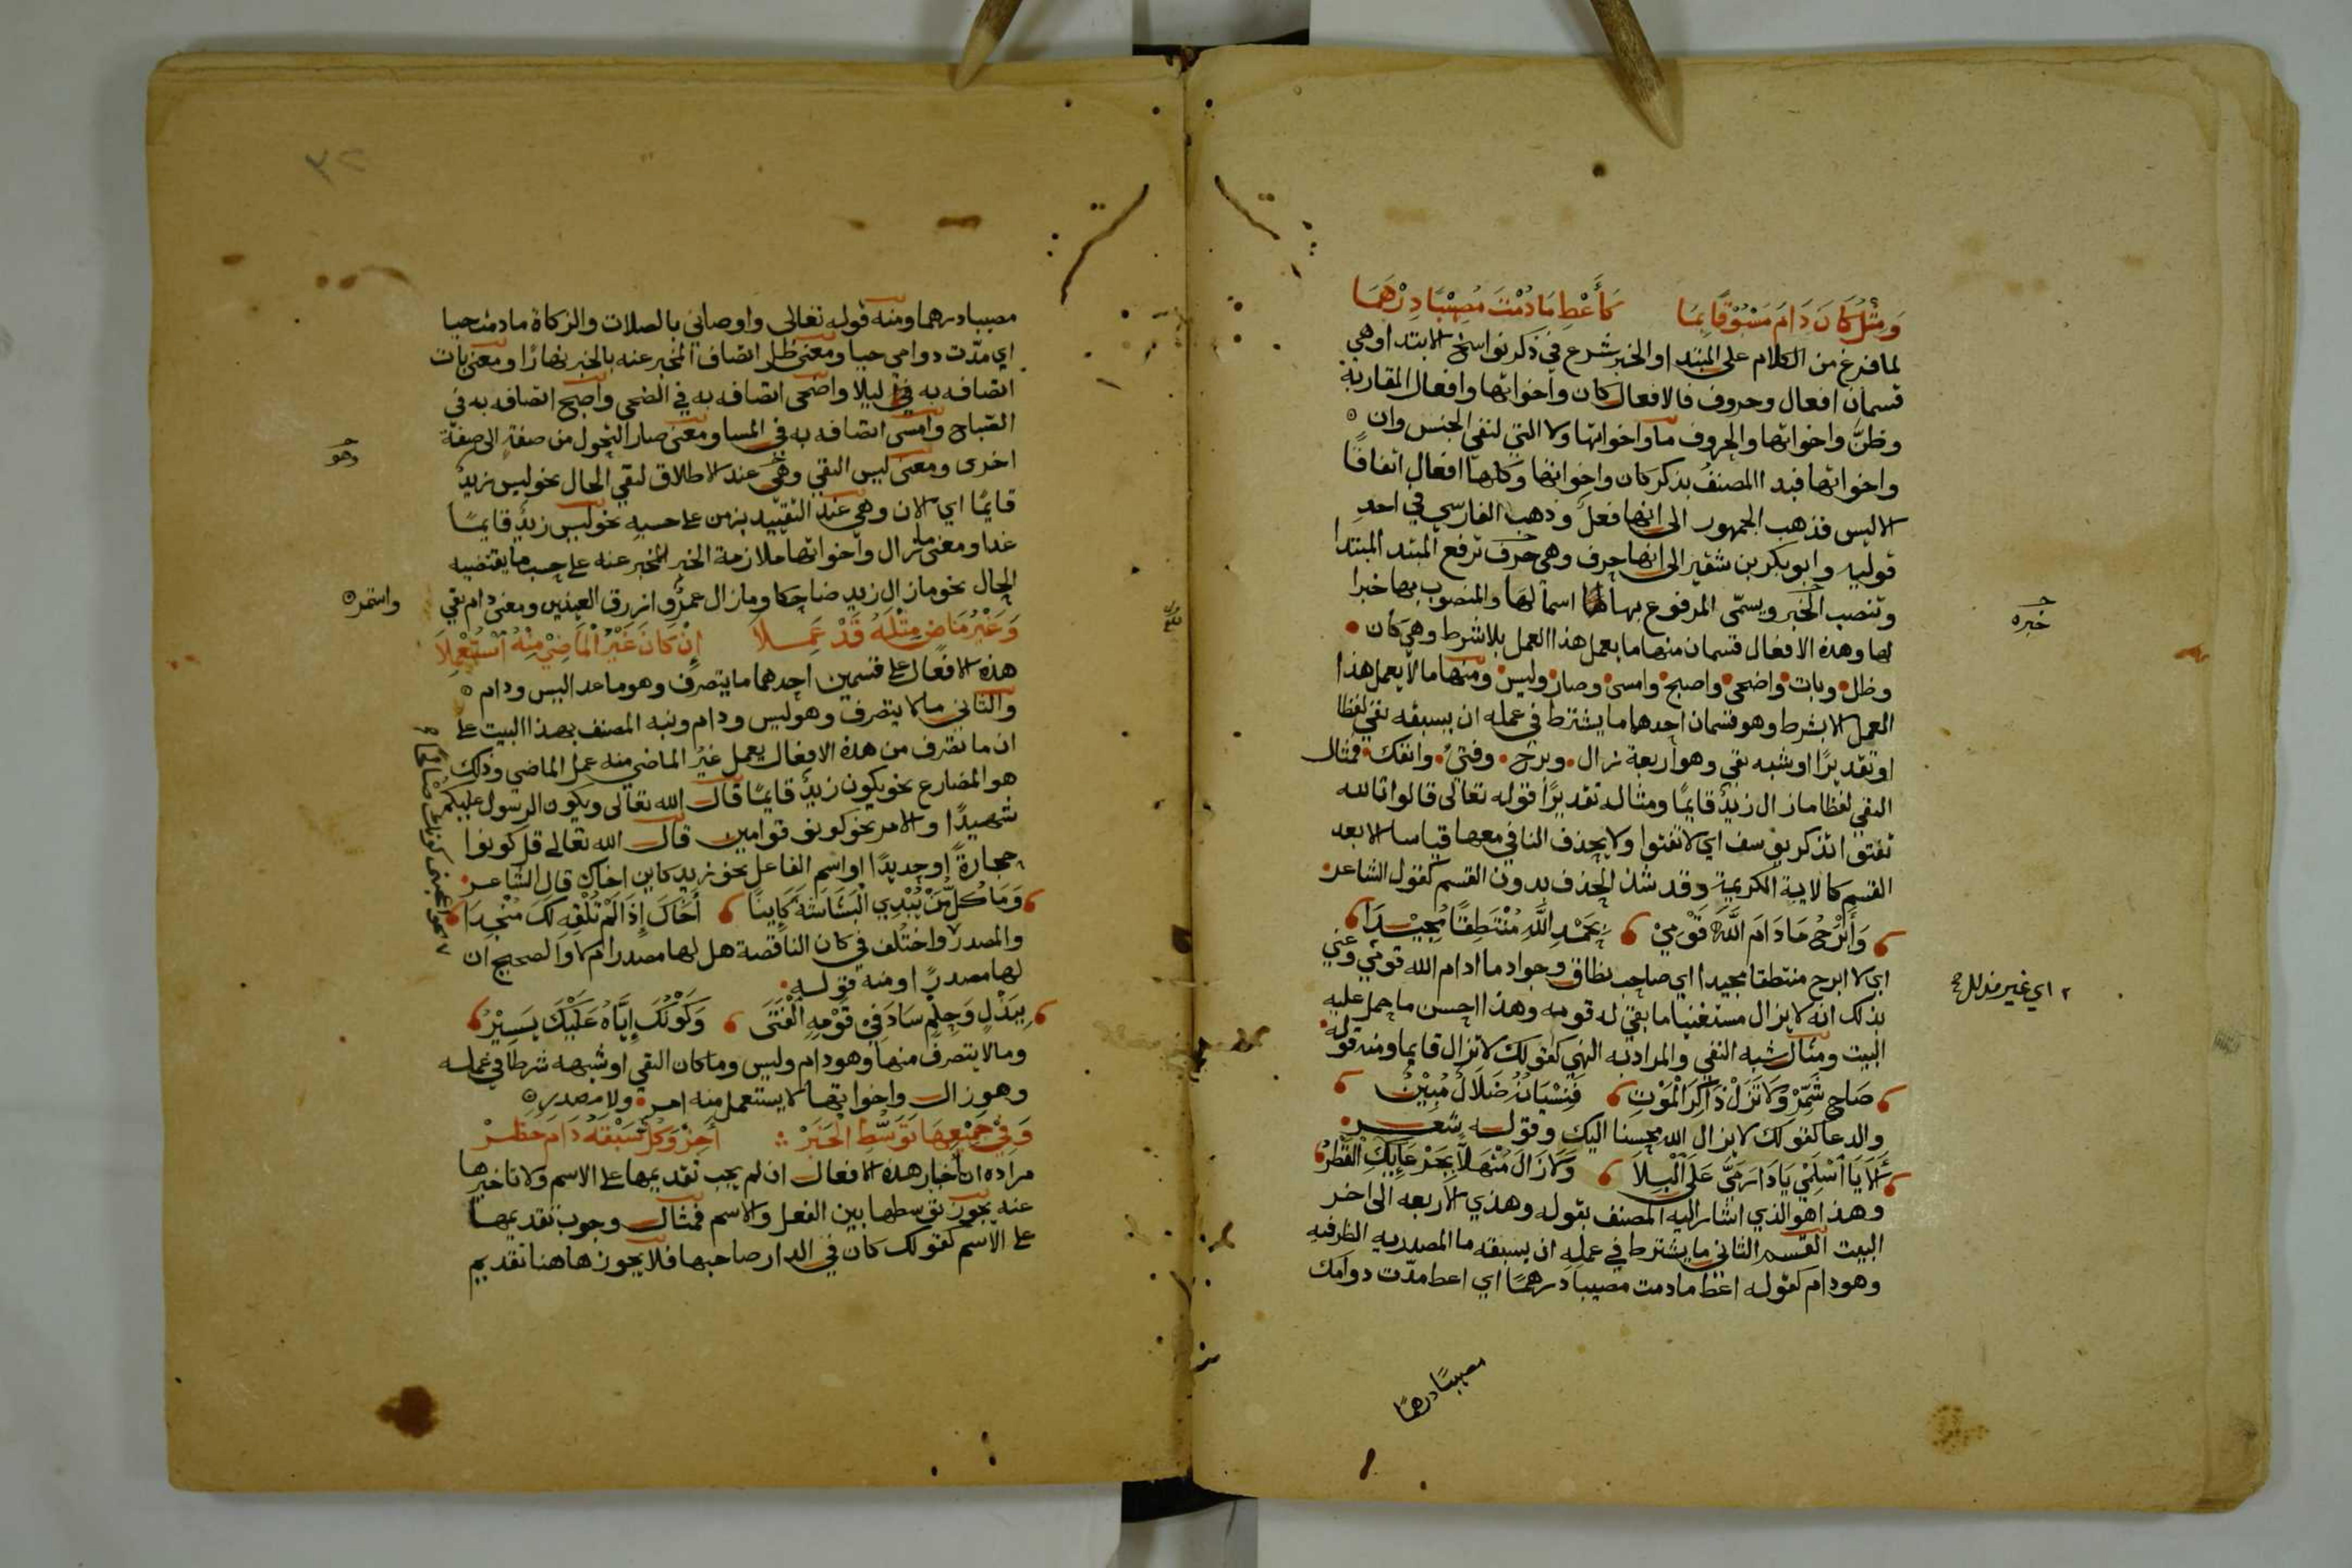 وَمِثْلُ كَانَ دَامَ مَسْبُوْقًا بِمَا كَأَعْطِ مَا دُمْتَ مُصِيْبًا دِرْهَمَا
لما فرغ من الكلام على المبتدا والخبر شرع في ذكر نواسخ الابتدا وهي
قسمان افعال وحروف فالافعال كان واخواتها وافعال المقاربة
وظنّ واخواتها والحروف ما واخواتها ولا التي لنفي الجنس وان
واخواتها فبدا المصنف بذكر كان واخواتها وكلها افعال اتفاقًا
الا ليس فذهب الجمهور الى انها فعل وذهب الفارسي في احد
قوليه وابو بكر بن شقير الى انها حرف وهي حرف ترفع المبتد المبتدا
وتنصب الخبر ويسمّى المرفوع بها اسمًا لها والمنصوب بها خبرا
خبره
لها وهذه الافعال قسمان منها ما يعمل هذا العمل بلا شرط وهي كان
وظل وبات واضحى واصبح وامسى وصار وليس ومنها ما لا يعمل هذا
العمل الا بشرط وهو قسمان احدها ما يشترط في عمله ان يسبقه نفي لفظا
او تقديرًا او شبه نفي وهو اربعة زال وبرح وفتئ وانفك فمثال
النفي لفظا ما زال زيدٌ قايمًا ومثاله تقديرًا قوله تعالى قالوا تالله
تفتوا تذكر يوسف اي لا تفتوا ولا يحذف النافي معها قياسا الا بعد
القسم كالاية الكريمة وقد شذ الحذف بدون القسم كقول الشاعر
وَأَبْرَحُ مَا دَامَ اللَّهُ قَوْمِيْ بِحَمْدِ اللَّهِ مُنْتَطِقًا مُجِيْدَا
اي لا ابرح منتطقا مجيدا اي صاحب نطاق وجواد ما ادام الله قومي وعني
٢ اي غير مذلل
بذلك انه لا يزال مستغنيا ما بقي له قومه وهذا احسن ما حمل عليه
البيت ومثال شبه النفي والمراد به النهي كقولك لا تزال قايما ومنه قوله
صَاحِ شَمِّرْ وَلَا تَزَلْ ذَاكِرَ الْمَوْتِ فَنِسْيَانُهُ ضَلَالٌ مُبِيْنُ
والدعا كقولك لا يزال الله محسنا اليك وقوله شعر
أَلَا يَا اسْلَمِيْ يَا دَارَ مَيَّ عَلَى الْبِلَا وَلَا زَالَ مُنْهَلًّا بِجَرْعَائِكِ الْقَطْرُ
وهذا هو الذي اشار اليه المصنف بقوله وهذي الاربعه الى اخر
البيت القسم الثاني ما يشترط في عمله ان يسبقه ما المصدريه الظرفيه
وهو دام كقوله اعط ما دمت مصيبا درهمًا اي اعط مدّت دوامك
مصيبًا درهمًا
٣٢
مصيبا درهما ومنه قوله تعالى واوصاني بالصلات والزكاة ما دمت حيا
اي مدّت دوامي حيا ومعنى ظل اتصاف المخبر عنه بالخبر نهارًا ومعنى بات
اتصافه به ليلا واضحى اتصافه به في الضحى واصبح اتصافه به في
الصباح وامسى اتصافه به في المسا ومعنى صار التحول من صفة الى صفة
وهو
اخرى ومعنى ليس النفي وهي عند الاطلاق لنفي الحال نحو ليس زيدٌ
قايمًا اي الان وهي عند التقييد بزمن على حسبه نحو ليس زيدٌ قايمًا
غدا ومعنى ما زال واخواتها ملازمة الخبر المخبر عنه على حسب ما يقتضيه
الحال نحو ما زال زيد ضاحكا وما زال عمرٌو ازرق العينين ومعنى دام بقي
واستمر
وَغَيْرُ مَاضٍ مِثْلَهُ قَدْ عَمِلَا إِنْ كَانَ غَيْرُ الْمَاضِيْ مِنْهُ اسْتُعْمِلَا
هذه الافعال على قسمين احدهما ما يتصرف وهو ما عدا ليس ودام
والثاني ما لا يتصرف وهو ليس ودام ونبه المصنف بهذا البيت على
ان ما تصرف من هذه الافعال يعمل غيرُ الماضي منه عمل الماضي وذلك
هو المضارع نحو يكون زيدٌ قايمًا قال الله تعالى ويكون الرسول عليكم
شهيدًا والامر نحو كونو قوامين قال الله تعالى قل كونوا
حجارةً او حديدًا او اسم الفاعل نحو زيد كاين اخاك قال الشاعر
وَمَا كُلُّ مَنْ يُبْدِي الْبَشَاشَةَ كَايِنًا أَخَاكَ إِذَا لَمْ تُلْفِهِ لَكَ مُنْجِدَا
والمصدر واختُلف في كان الناقصة هل لها مصدر ام لا والصحيح ان
لها مصدرًا ومنه قوله
بِبَذْلٍ وَحِلْمٍ سَادَ فِيْ قَوْمِهِ الْفَتَى وَكَوْنُكَ إِيَّاهُ عَلَيْكَ يَسِيْرُ
وما لا يتصرف منها وهو دام وليس وما كان النفي او شبهه شرطا في عمله
وهو زال واخواتها لا يستعمل منه امر ولا مصدر
وَفِيْ جَمِيْعِهَا تَوَسُّطَ الْخَبَرْ أَجِزْ وَكُلٌّ سَبْقَهُ دَامَ حَظَرْ
مراده ان اخبار هذه الافعال ان لم يجب تقديمها على الاسم ولا تاخيرها
عنه يجوز توسطها بين الفعل والاسم فمثال وجوب تقديمها
على الاسم كقولك كان في الدار صاحبها فلا يجوز هاهنا تقديم